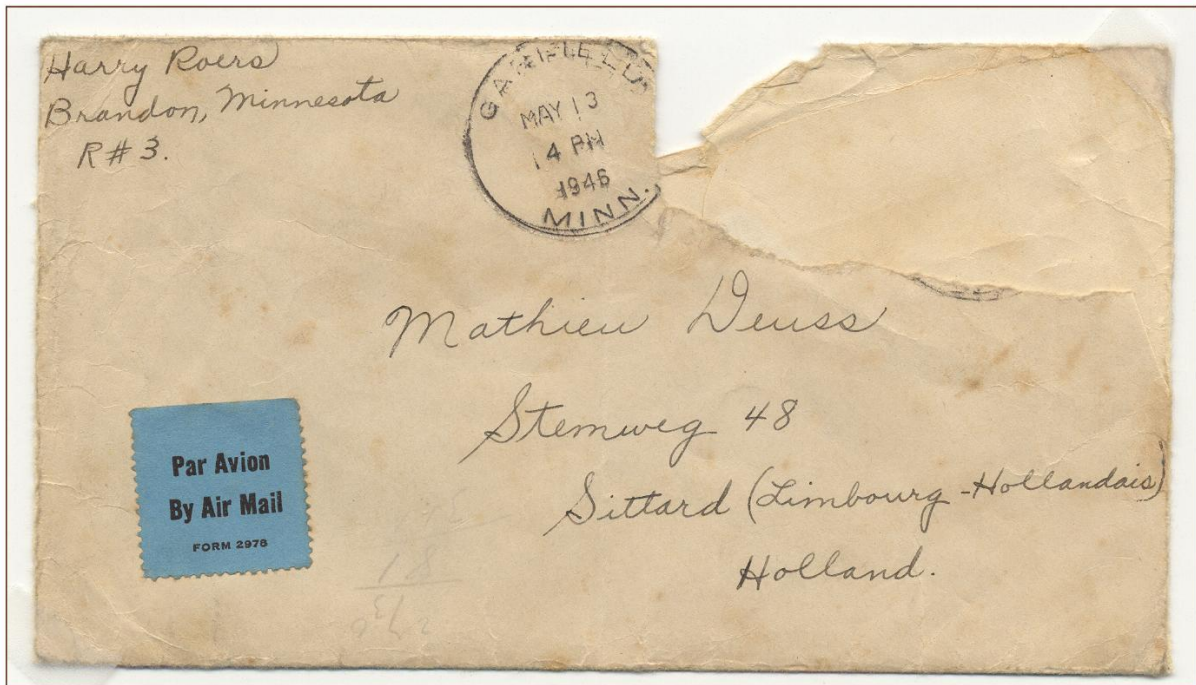 Harry Roers
Brandon, Minnesota
R#3.
GARFIELD
MAY 13
4 PM
1946
MINN.
Mathieu Deuss
Stemweg 48
Sittard (Limbourg-Hollandais)
Holland.
Par Avion
By Air Mail
FORM 2978
18